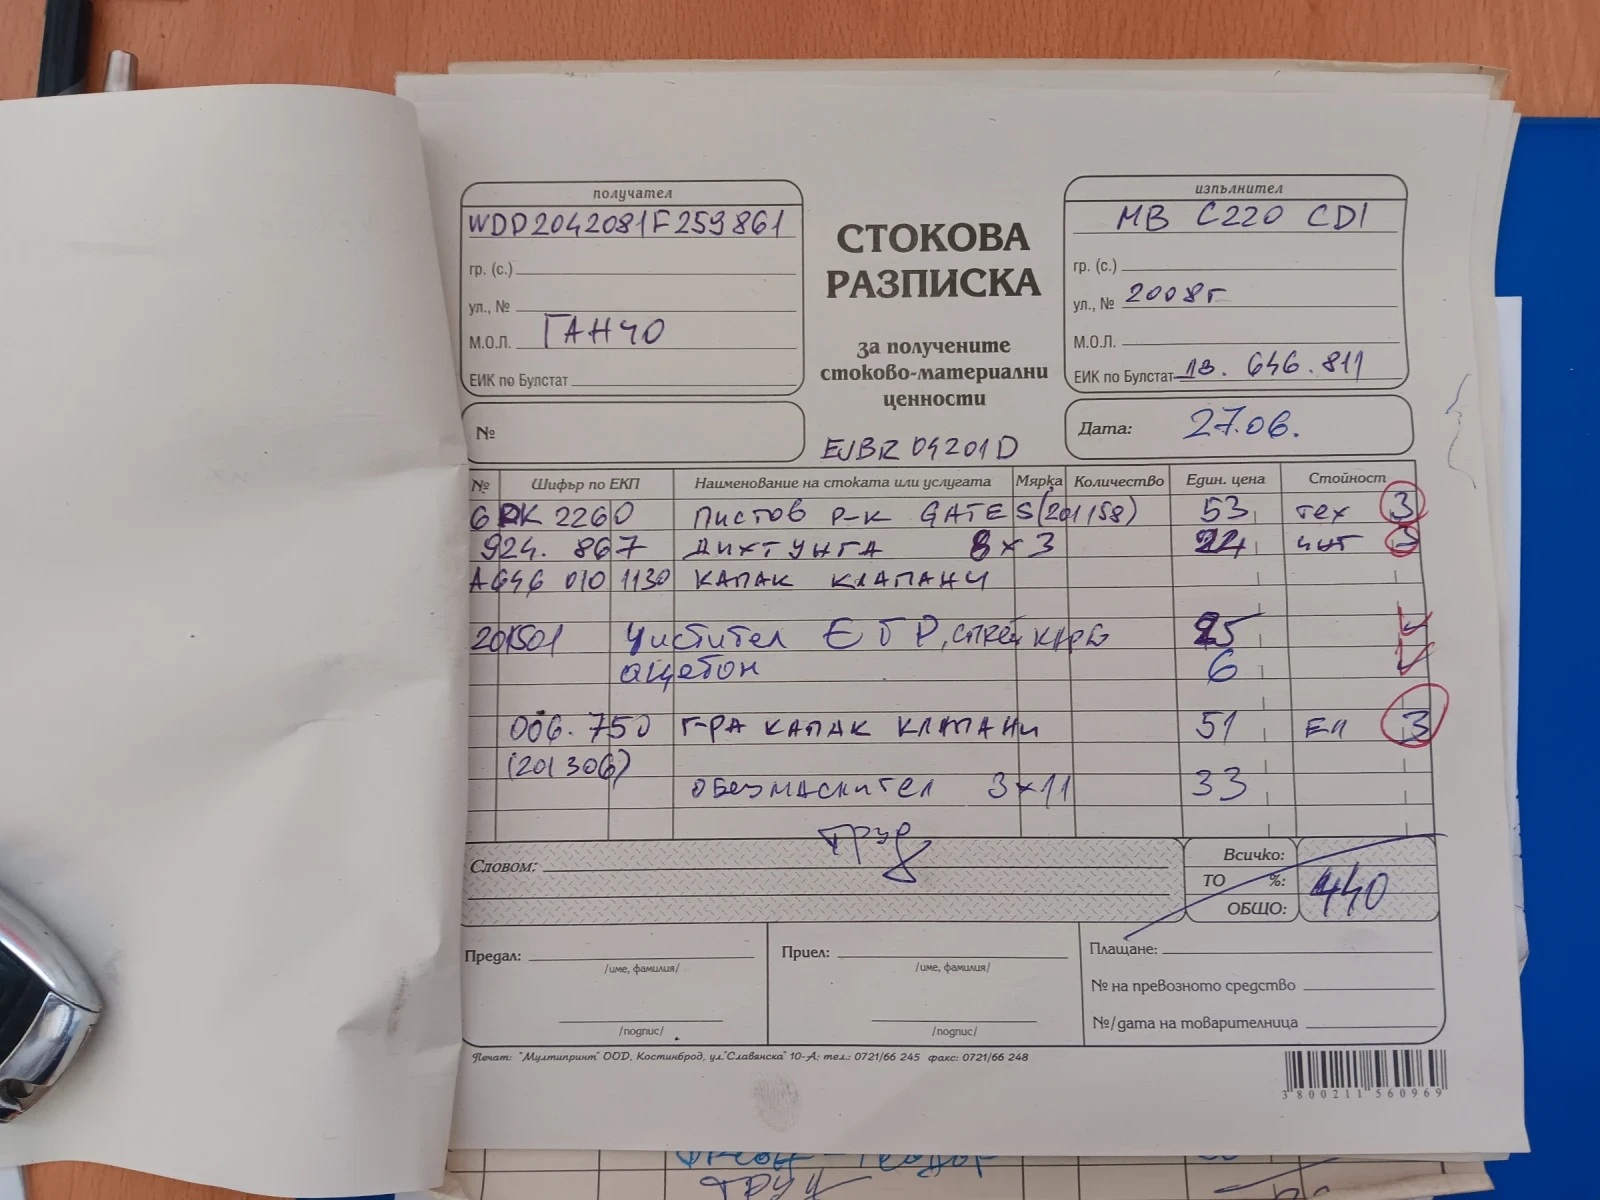 получател
WDD2042081F259861
гр. (с.)
ул., №
М.О.Л. ГАНЧО
ЕИК по Булстат
СТОКОВА
РАЗПИСКА
за получените
стоково-материални
ценности
изпълнител
MB C220 CDI
гр. (с.)
ул., № 2008г
М.О.Л.
ЕИК по Булстат 13. 646.811
№
EJBR 04201D
Дата: 27.06.
№ Шифър по ЕКП Наименование на стоката или услугата Мярка Количество Един. цена Стойност
6PK 2260 Пистов р-к GATES (201158) 53 тех 3
924. 867 ДИХТУНГА 8x3 24 3
A646 010 1130 КАПАК КЛАПАНИ
201501 Чистител ЕГР, спрей карб 25
ацетон 6
006.750 Г-РА КАПАК КЛАПАНИ 51 ЕЛ 3
(201306)
ОБЕЗМАСЛИТЕЛ 3x11 33
труд
Словом:
Всичко:
ТО %:
ОБЩО: 440
Предал:
/име, фамилия/
/подпис/
Приел:
/име, фамилия/
/подпис/
Плащане:
№ на превозното средство
№/дата на товарителница
Печат: "Мултипринт" ООД, Костинброд, ул."Славянска" 10-А; тел.: 0721/66 245 факс: 0721/66 248
3800211560969
ТРУД